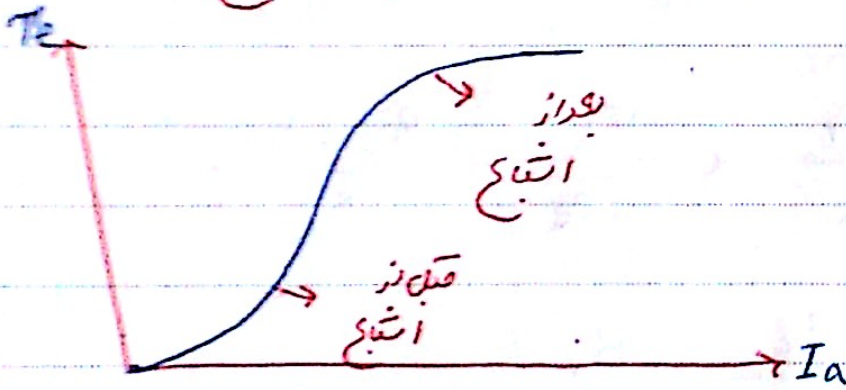 بعداز
اشباع
قبل از
اشباع
Ia